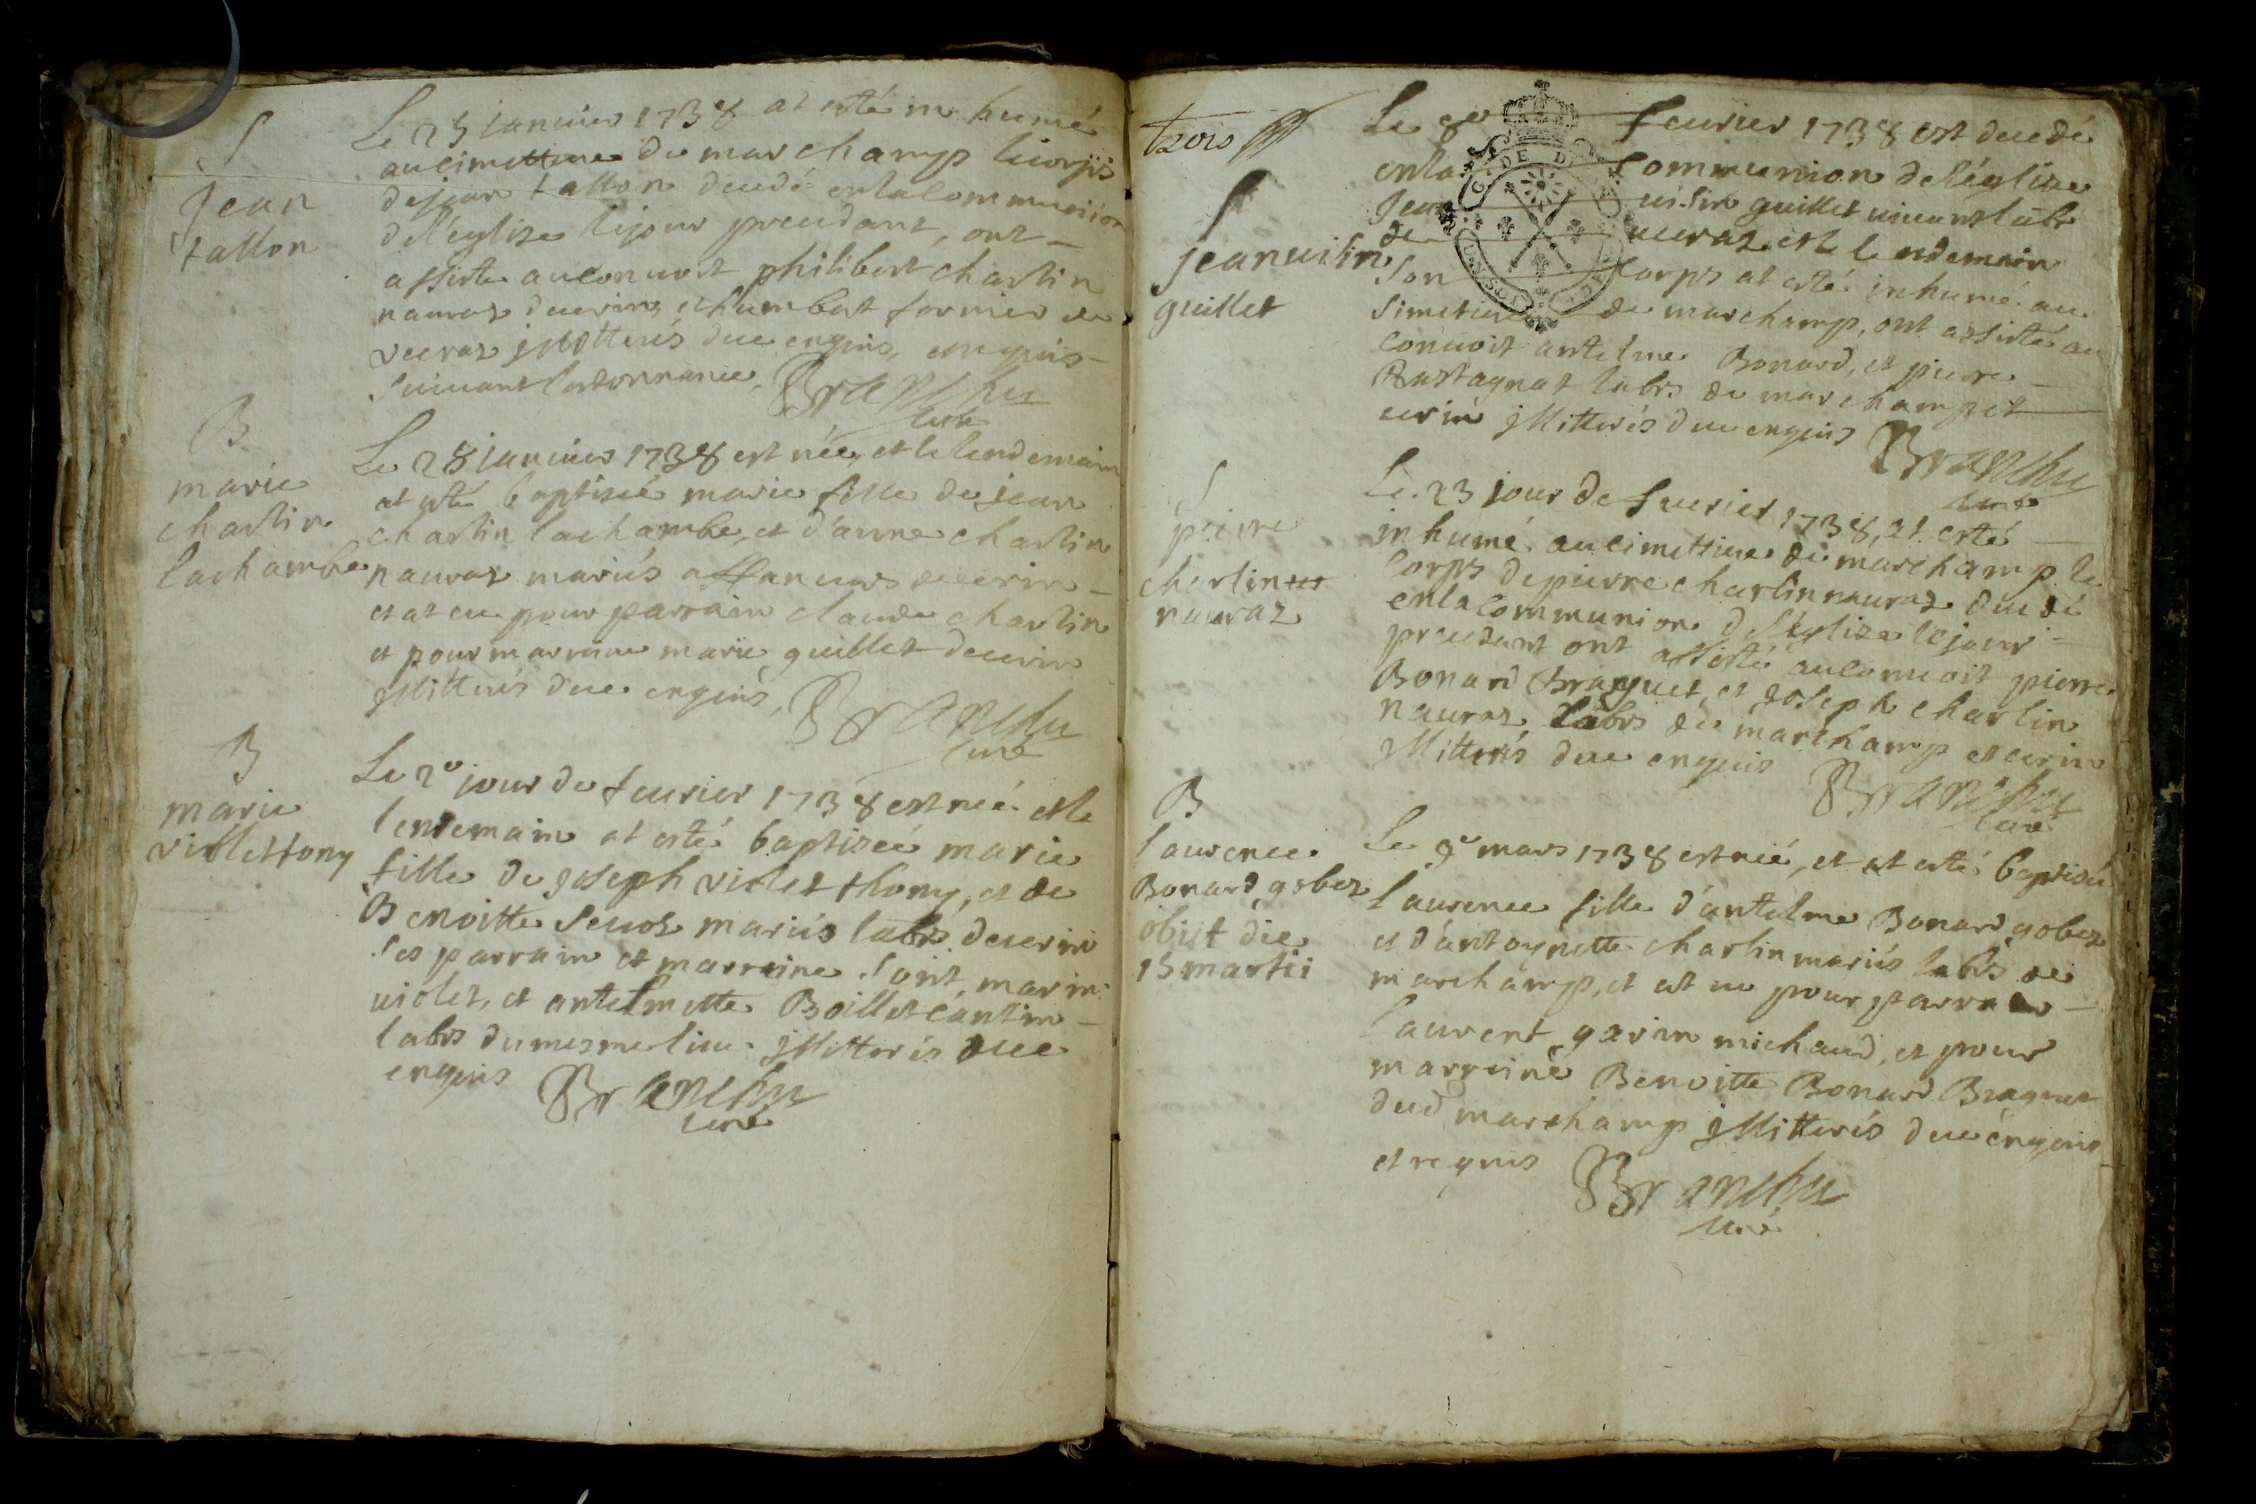 S
Jean
tallon
Le 25 Januier 1738 at esté inhumé
au cimettiere de marchamp le corps
de jean tallon decedé en la communion
de l'eglize le jour precedant, ont
assisté au conuoit philibert charlin
nauraz de cerin, et humbert fornier de
veuraz illitterés de ce enquis, enquis
suiuant l'ordonnance. Branchu
curé
B
marie
charlin
lachambe
Le 28 Januier 1738 est née, et le lendemain
at esté baptizée marie fille de jean
charlin lachambe, et d'anne charlin
nauraz mariés affaneurs de cerin
et at eu pour parrain claude charlin
et pour marraine marie guillet de cerin
illitterés de ce enquis, Branchu
curé
B
marie
violet tony
Le 2e jour de feurier 1738 est née et le
lendemain at esté baptizée marie
fille de joseph violet thony, et de
Benoitte Seuoz mariés labrs de cerin
ses parrain et marreine sont, marin
uiolet, et antelmette Boillet cantin
labrs du mesme lieu illitterés de ce
enquis Branchu
curé
trois
S
jean uisin
guillet
Le 8e feurier 1738 est decedé
en la communion de l'eglise
Jean uisin guillet uiuant labr
de ueuraz et le lendemain
son corps at esté inhumé au
simetiere de marchamp, ont assisté au
conuoit antelme Bonard, et pierre
Rastagnat labrs de marchamp et
cerin illitterés de ce enquis Branchu
curé
S
pierre
charlin
nauraz
Le 23 jour de feurier 1738, at esté
inhumé au cimettiere de marchamp le
corps de pierre charlin nauraz decedé
en la communion de l'eglize le jour
precedant ont assisté au conuoit pierre
Bonard Braguet, et joseph charlin
nauraz labrs de marchamp et cerin
illitterés de ce enquis Branchu
curé
B
laurence
Bonard gobez
obiit die
15 martii
Le 9e mars 1738 est née, et at esté baptisée
laurence fille d'antelme Bonard gobez
et d'antoynette charlin mariés labrs de
marchamp, et at eu pour parrain
laurent garin michaud, et pour
marreine Benoitte Bonard Braguet
dud marchamp illitterés de ce enquis
et requis Branchu
curé